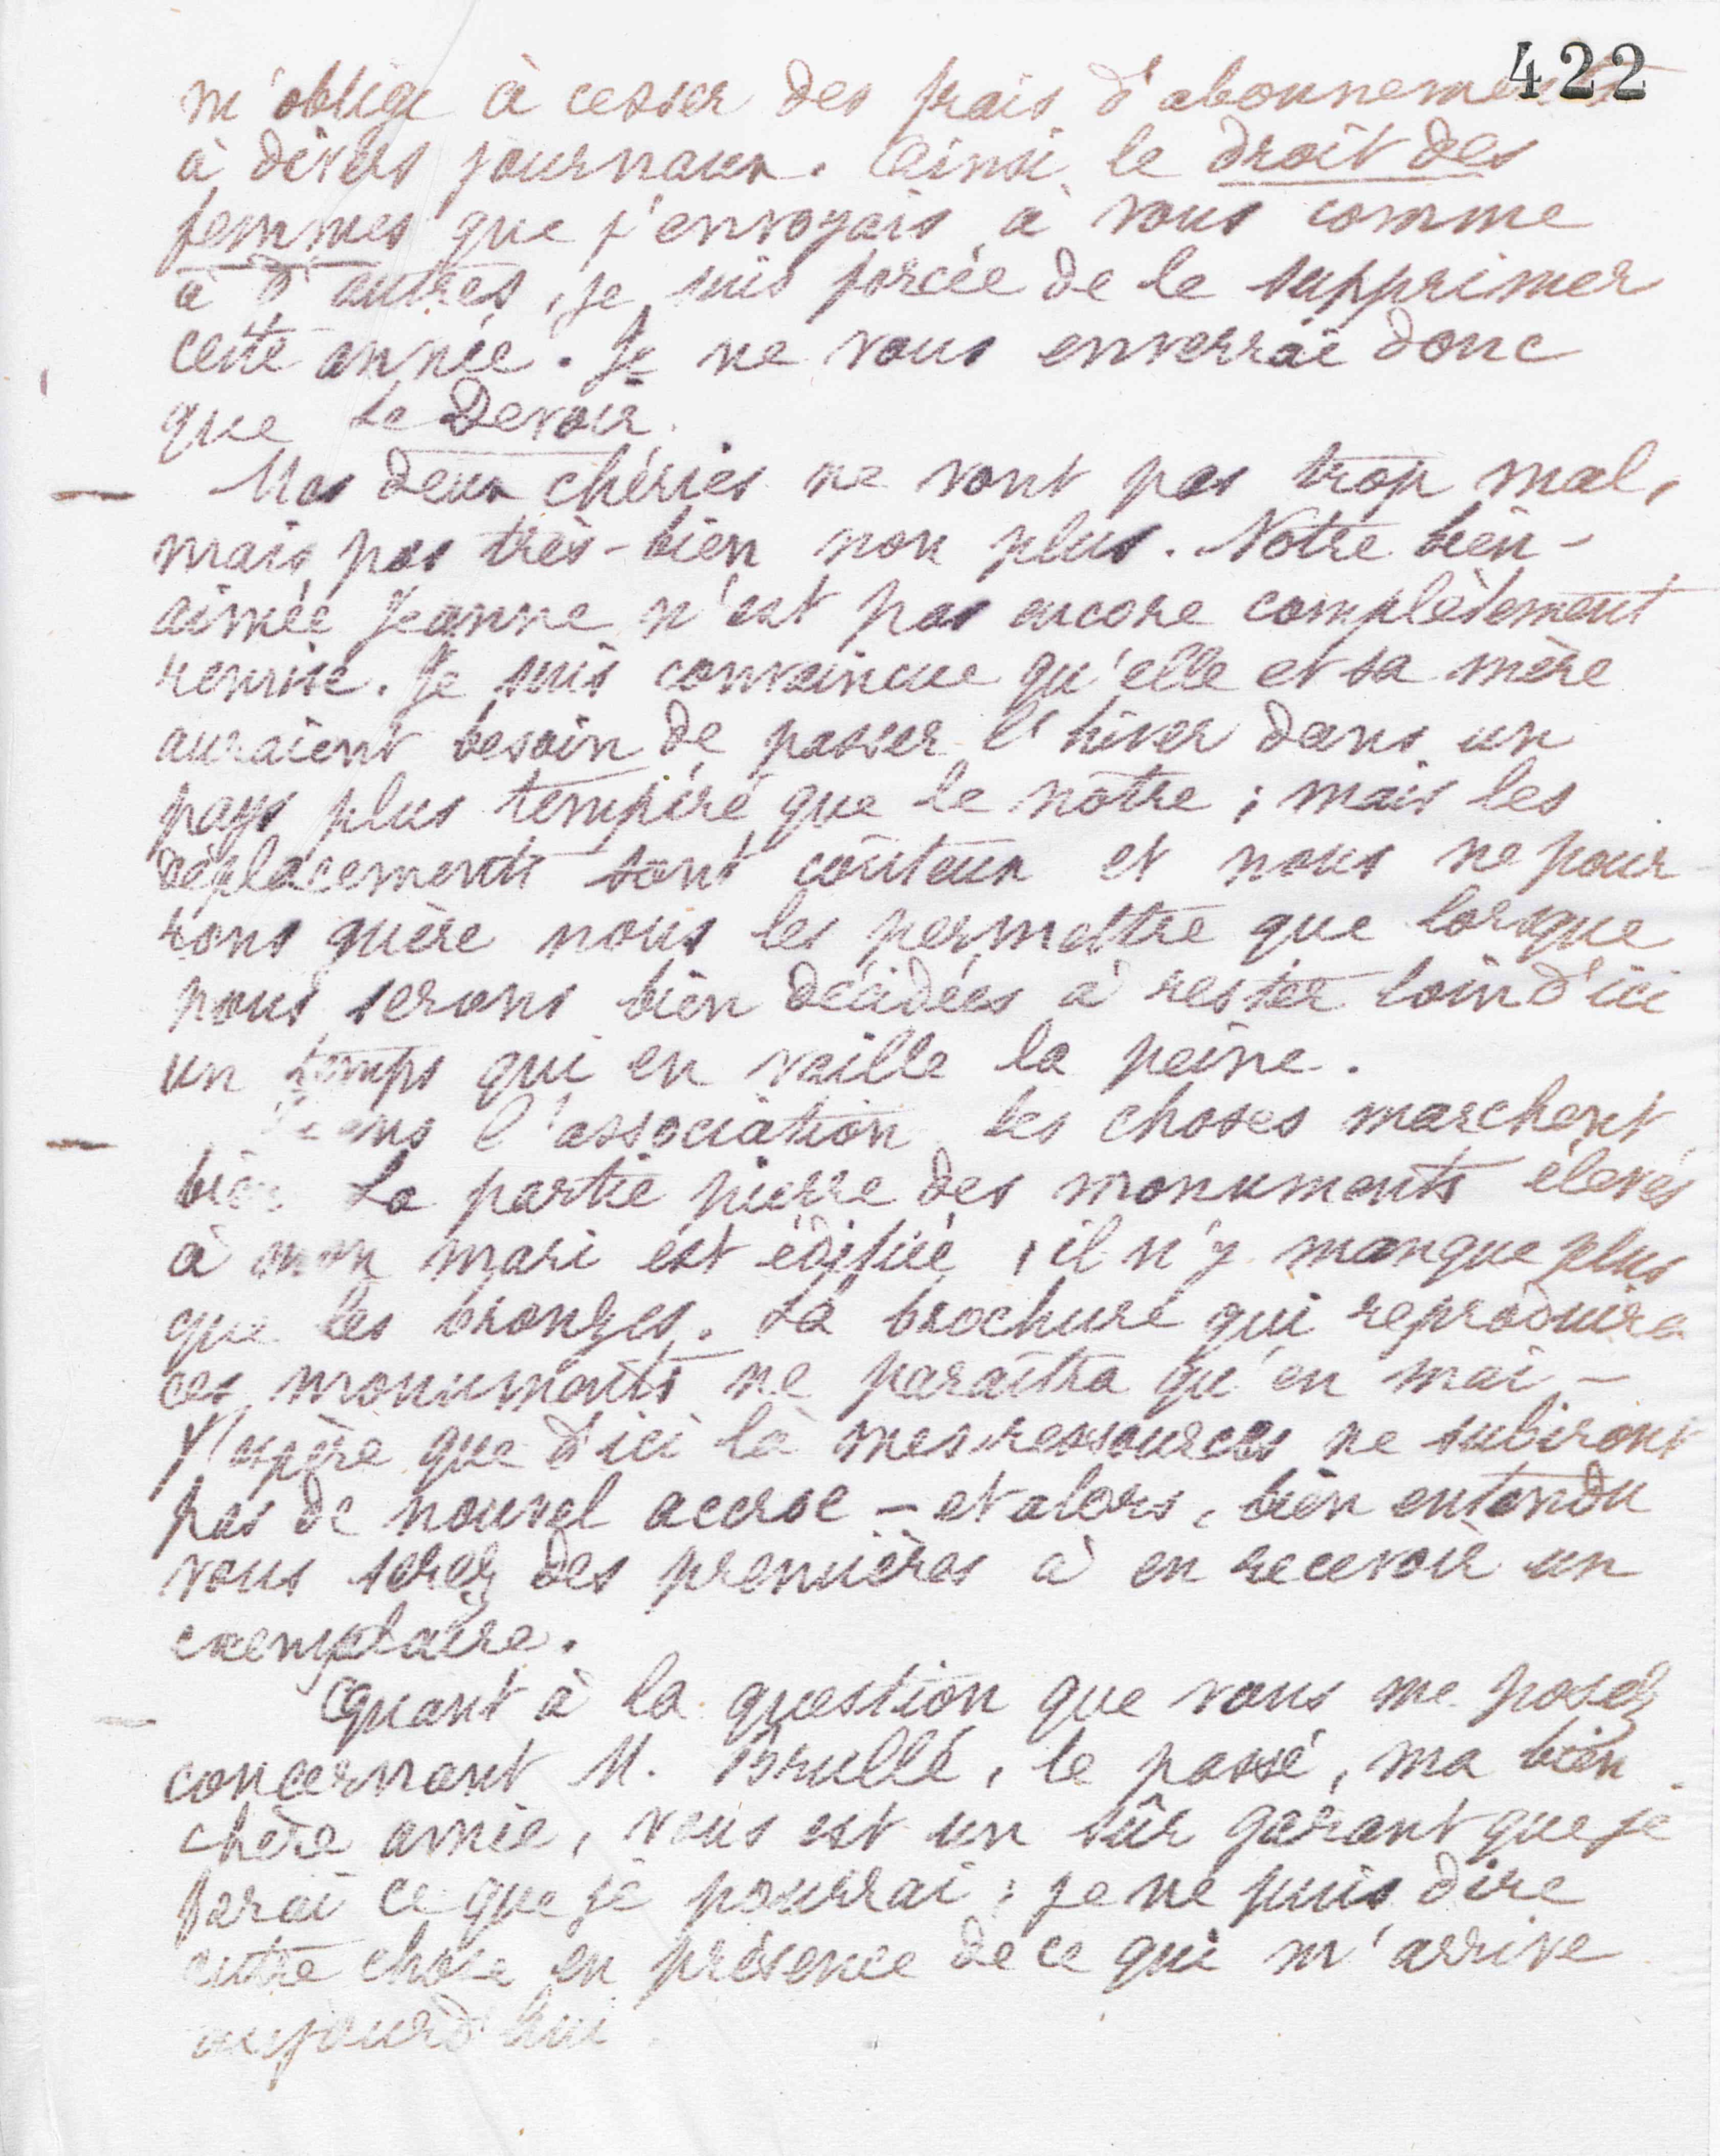 422
m'oblige à cesser des frais d'abonnements
à divers journaux. Ainsi, le droit des
femmes que j'envoyais à vous comme
à d'autres, je suis forcée de le supprimer
cette année. Je ne vous enverrai donc
que Le Devoir.
Mes deux chéries ne vont pas trop mal,
mais pas très-bien non plus. Notre bien-
aimée Jeanne n'est pas encore complètement
remise. Je suis convaincue qu'elle et sa mère
auraient besoin de passer l'hiver dans un
pays plus tempéré que le nôtre ; mais les
déplacements sont coûteux et nous ne pour
rons guère nous les permettre que lorsque
nous serons bien décidées à rester loin d'ici
un temps qui en vaille la peine.
Dans l'association les choses marchent
bien. La partie pierre des monuments élevés
à mon mari est édifiée, il n'y manque plus
que les bronzes. La brochure qui reproduira
ces monuments ne paraîtra qu'en mai -
J'espère que d'ici là mes ressources ne subiront
pas de nouvel accroc - et alors, bien entendu
vous serez des premières à en recevoir un
exemplaire.
Quant à la question que vous me posez
concernant M. Brullé, le passé, ma bien
chère amie, vous est un sûr garant que je
ferai ce que je pourrai ; je ne puis dire
autre chose en présence de ce qui m'arrive
aujourd'hui.